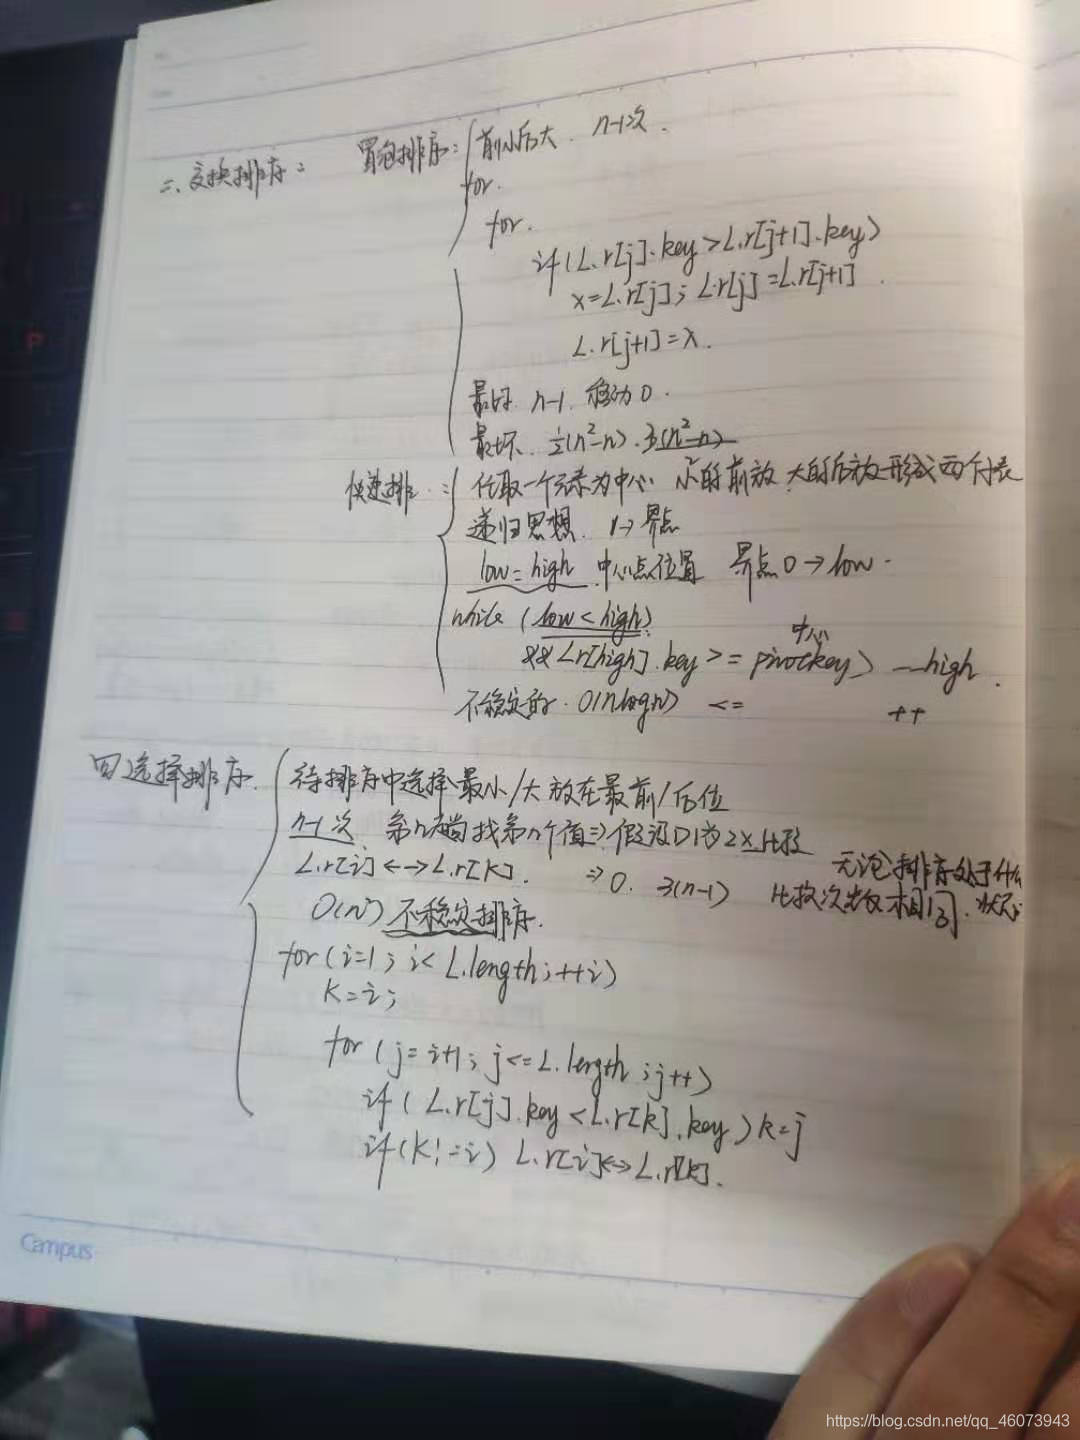 二、交换排序: 冒泡排序: 前小后大. n-1次.
for.
for.
if(L.r[j].key>L.r[j+1].key)
x=L.r[j]; L.r[j]=L.r[j+1].
L.r[j+1]=x.
最好. n-1. 移动0.
最坏. ½(n²-n).
快速排: 任取一个记录为中心 小的前放,大的后放形成两个子表
递归思想. 界点
low=high 中心点位置 界点0→low.
中心
while (low<high)
&&L.r[high].key>=pivotkey) --high.
不稳定的. O(nlogn) <= ++
四 选择排序. 待排序中选择最小/大放在最前/后位
n-1次 第n趟找第n个值
L.r[i]←→L.r[k]. ⇒0. 3(n-1) 无论排序处于什么
比较次数相同. 状态
O(n²) 不稳定排序.
for(i=1; i<L.length;++i)
k=i;
for(j=i+1; j<=L.length;j++)
if(L.r[j].key<L.r[k].key)k=j
if(k!=i) L.r[i]↔L.r[k].
Campus
https://blog.csdn.net/qq_46073943